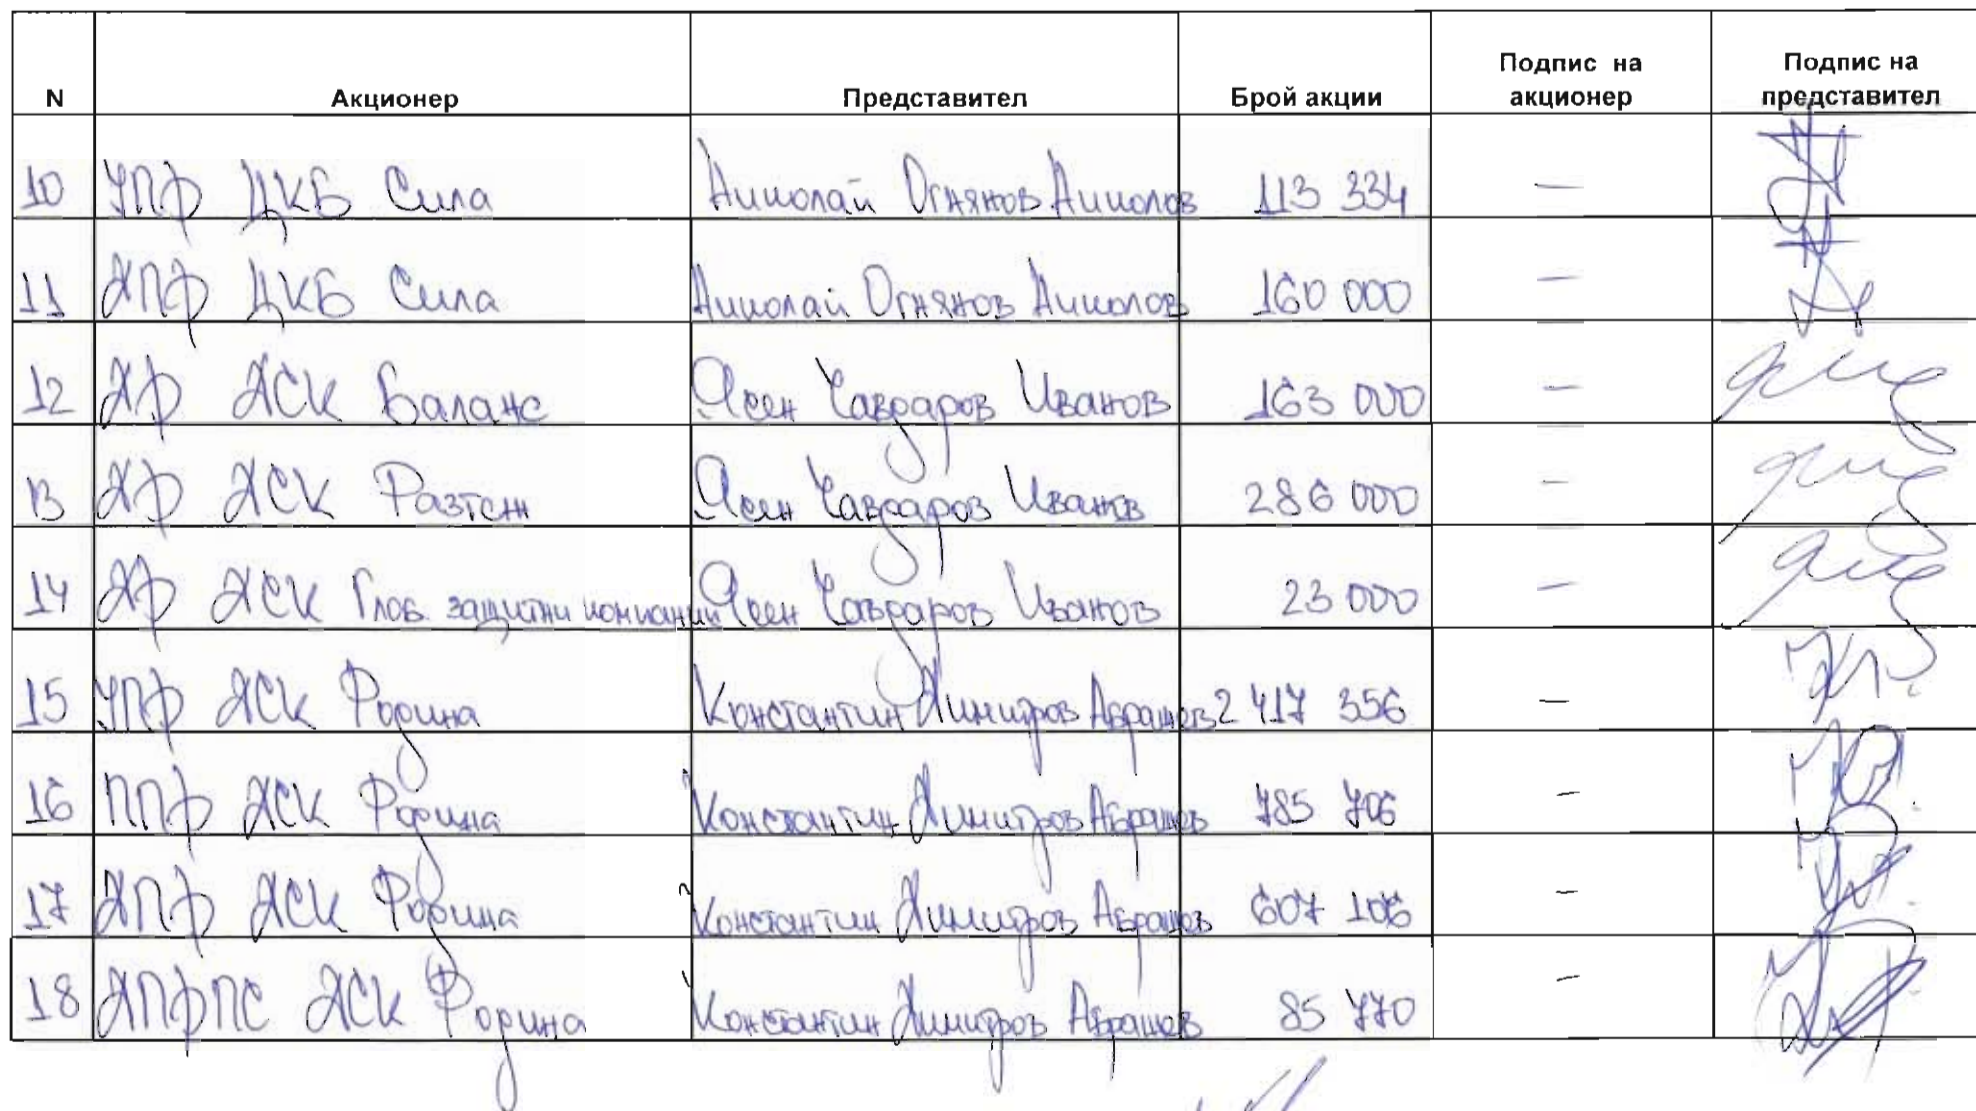 N Акционер Представител Брой акции Подпис на акционер Подпис на представител
10 УПФ ЦКБ Сила Николай Огнянов Николов 113 334 —
11 ДПФ ЦКБ Сила Николай Огнянов Николов 160 000 —
12 ДФ ДСК Баланс Ясен Чавдаров Иванов 163 000 —
13 ДФ ДСК Растеж Ясен Чавдаров Иванов 286 000 —
14 ДФ ДСК Глоб. защитни компании Ясен Чавдаров Иванов 23 000 —
15 УПФ ДСК Родина Константин Димитров Абрашев 2 417 356 —
16 ППФ ДСК Родина Константин Димитров Абрашев 785 706 —
17 ДПФ ДСК Родина Константин Димитров Абрашев 607 106 —
18 ДПФПС ДСК Родина Константин Димитров Абрашев 85 770 —